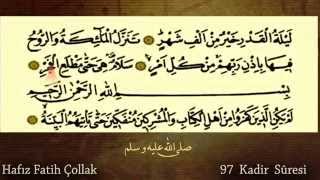 لَيْلَةُ الْقَدْرِ خَيْرٌ مِنْ اَلْفِ شَهْرٍ ۞ تَنَزَّلُ الْمَلٰٓئِكَةُ وَالرُّوحُ
فِيهَا بِاِذْنِ رَبِّهِمْ مِنْ كُلِّ اَمْرٍ ۞ سَلَامٌ هِيَ حَتّٰى مَطْلَعِ الْفَجْرِ
بِسْمِ اللّٰهِ الرَّحْمٰنِ الرَّحِيمِ
لَمْ يَكُنِ الَّذِينَ كَفَرُوا مِنْ اَهْلِ الْكِتَابِ وَالْمُشْرِكِينَ مُنْفَكِّينَ حَتّٰى تَاْتِيَهُمُ الْبَيِّنَةُ
صلى الله عليه وسلم
Hafız Fatih Çollak 97 Kadir Sûresi